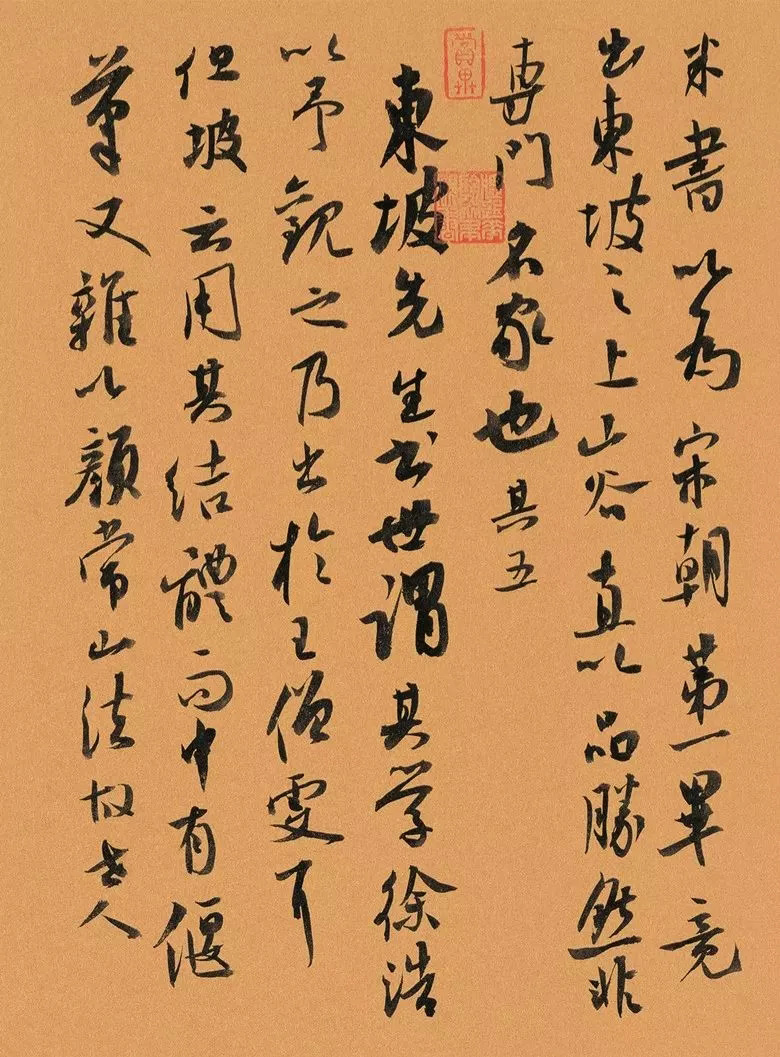 米書以為宋朝第一畢竟
出東坡之上山谷直以品勝然非
專門名家也其五
東坡先生書世謂其學徐浩
以予觀之乃出於王僧虔耳
但坡云用其結體而中有偃
筆又雜以顏常山法故世人